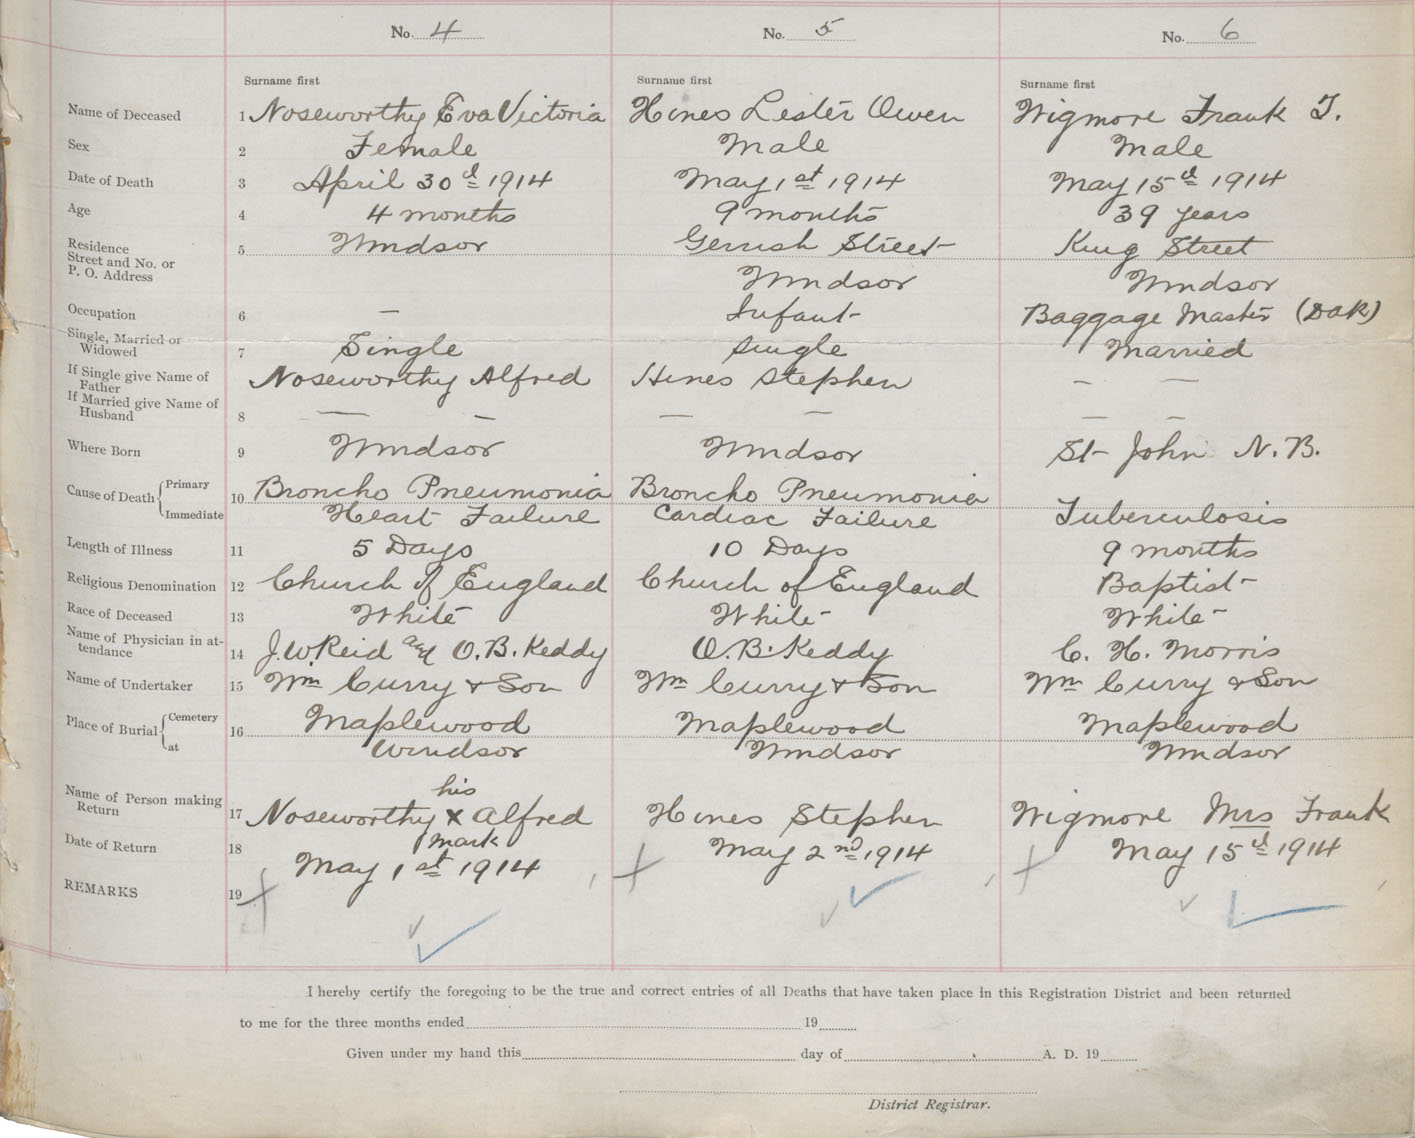 No. 4 No. 5 No. 6
Surname first Surname first Surname first
Name of Deceased 1 Noseworthy Eva Victoria Hines Lester Owen Wigmore Frank T.
Sex 2 Female Male Male
Date of Death 3 April 30th 1914 May 1st 1914 May 15th 1914
Age 4 4 months 9 months 39 years
Residence 5 Windsor Gerrish Street King Street
Street and No. or
P. O. Address Windsor Windsor
Occupation 6 — Infant Baggage Master (DAR)
Single, Married or
Widowed 7 Single Single Married
If Single give Name of
Father Noseworthy Alfred Hines Stephen — —
If Married give Name of
Husband 8 — — — — — —
Where Born 9 Windsor Windsor St John N. B.
Cause of Death { Primary 10 Broncho Pneumonia Broncho Pneumonia
Immediate Heart Failure Cardiac Failure Tuberculosis
Length of Illness 11 5 Days 10 Days 9 months
Religious Denomination 12 Church of England Church of England Baptist
Race of Deceased 13 White White White
Name of Physician in at-
tendance 14 J. W Reid and O. B. Keddy O. B. Keddy C. H. Morris
Name of Undertaker 15 Wm Curry & Son Wm Curry & Son Wm Curry & Son
Place of Burial { Cemetery 16 Maplewood Maplewood Maplewood
at Windsor Windsor Windsor
his
Name of Person making
Return 17 Noseworthy X Alfred Hines Stephen Wigmore Mrs Frank
mark
Date of Return 18 May 1st 1914 May 2nd 1914 May 15th 1914
REMARKS 19
I hereby certify the foregoing to be the true and correct entries of all Deaths that have taken place in this Registration District and been returned
to me for the three months ended 19
Given under my hand this day of A. D. 19
District Registrar.